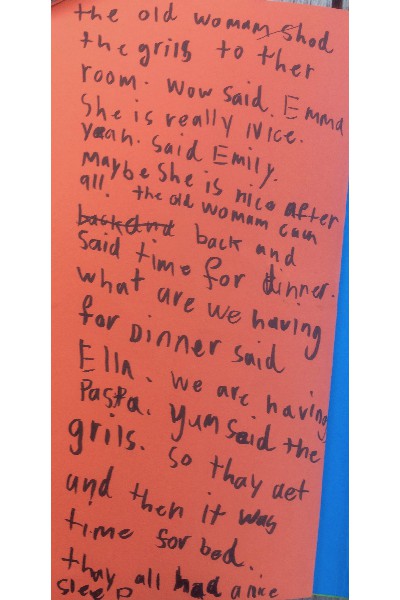 the old womam shod
the grils to ther
room. Wow said. Emma
She is really Nice.
Yeah. Said Emily.
Maybe She is nice after
all. the old womam cam
backand back and
Said time for dinner.
what are we having
for Dinner said
Ella. we are having
Pasta. Yum said the
grils. So thay aet
and then it was
time for bed.
thay all had a nice
Sleep